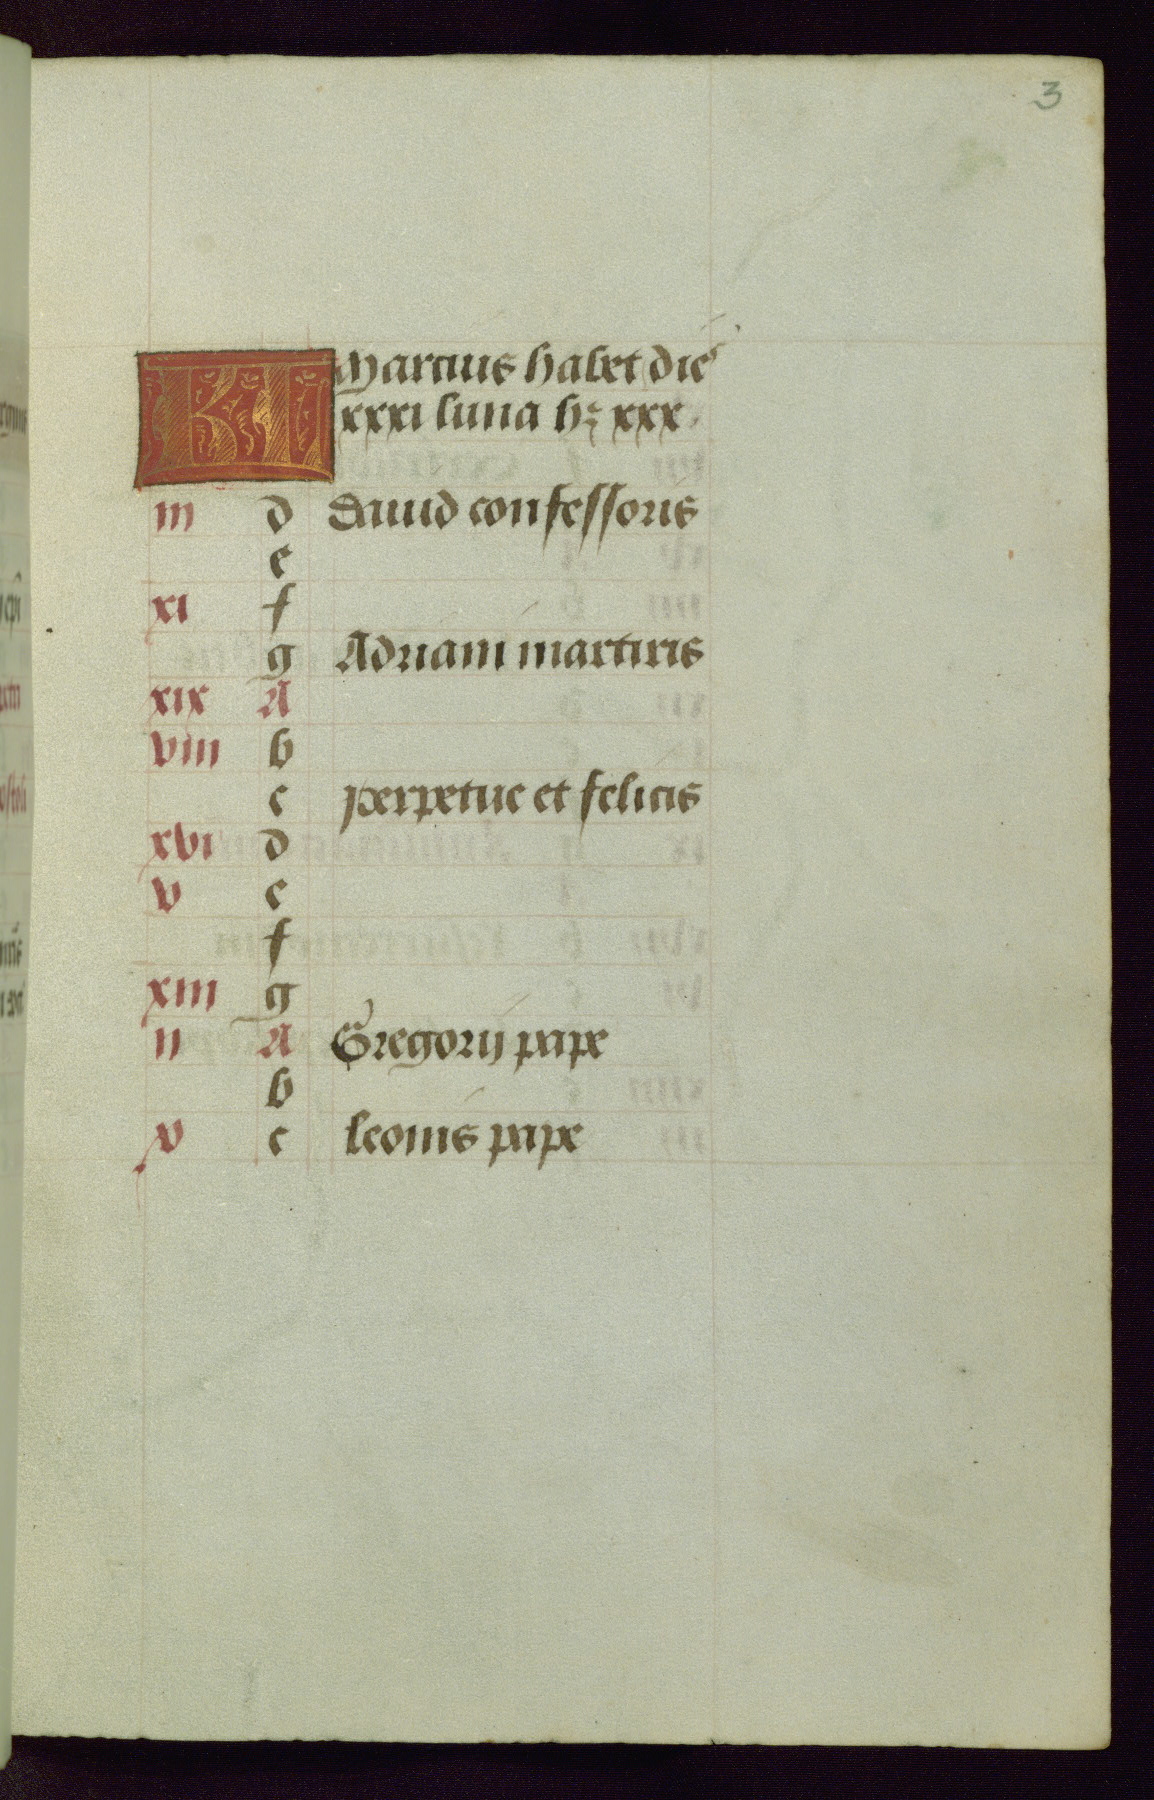 3
KL Marcius habet dieˢ
xxxi luna hꝫ xxx.
iii d Dauid confessoris
e
xi f
g Adriani martiris
xix A
viii b
c perpetue et felicis
xvi d
v e
f
xiii g
ii A Gregorij pape
b
x c leonis pape